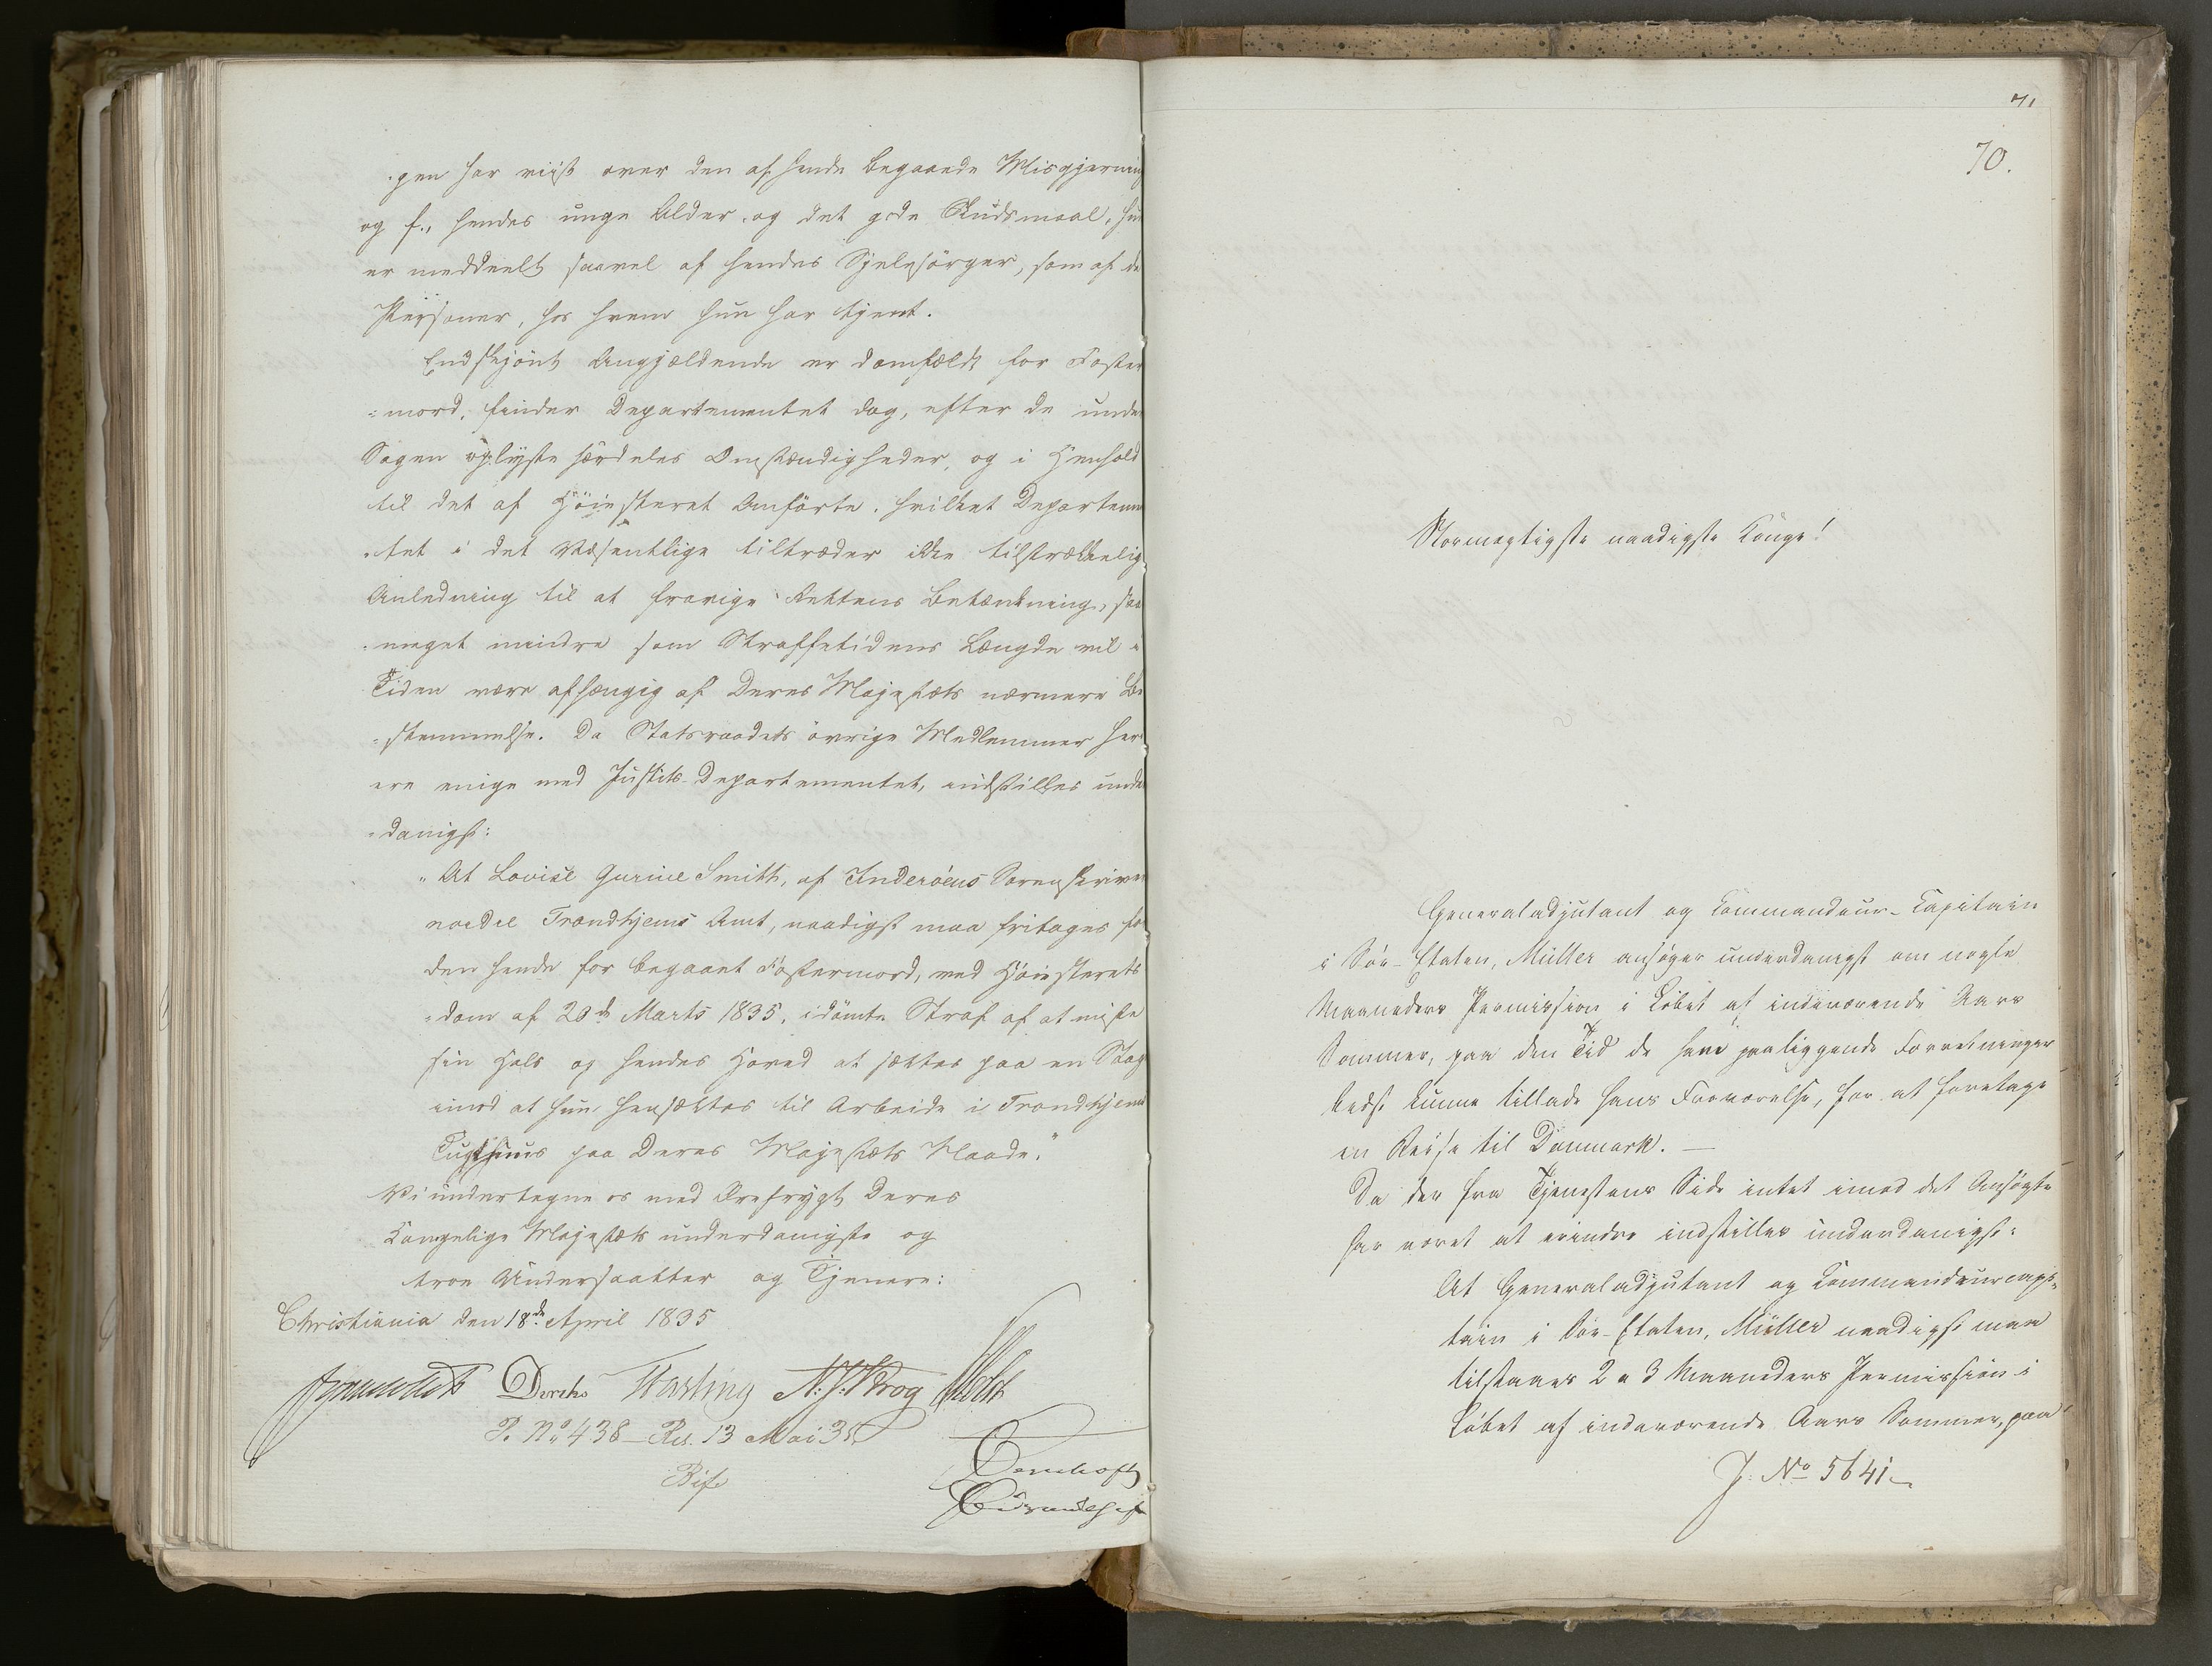 -gen har viist over den af hende begaaede Misgjerning
og f., hendes unge Alder og det gode Skudsmaal, hun
er meddeelt saavel af hendes Sjelesörger, som af de
Personer, hos hvem hun har tjent.
Endskjönt Angjældende er domfældt for Foster
=mord, finder Departementet dog, efter de under
Sagen oplyste særdeles Omstændigheder, og i Henhold
til det af Höiesteret Anförte, hvilket Departemen
-tet i det Væsentlige tiltræder ikke tilstrækkelig
Anledning til at fravige Rettens Betænkning, saa
-meget mindre som Straffetidens Længde vil i
Tiden være afhængig af Deres Majestæts nærmere Be
-stemmelse. Da Statsraadets övrige Medlemmer her
ere enige med Justits-Departementet, indstilles under
-danigst:
"At Lovise Gurine Smith, af Inderöens Sorenskriveri
nordre Trondhjems Amt, naadigst maa fritages for
den hende for begaaet Fostermord, ved Höiesterets
-dom af 20de Marts 1835, idömte Straf af at miste
sin Hals og hendes Hoved at sættes paa en Stage
imod at hun hensættes til Arbeide i Trondhjems
Tugthuus paa Deres Majestæts Naade."
Vi undertegne os med Ærefrygt Deres
Kongelige Majestæts underdanigste og
troe Undersaatter og Tjenere:
Christiania den 18de April 1835
N. J. Krog Holst
P. No 438 - Res. 13 Mai 35
71
70.
Stormægtigste naadigste Konge!
Generaladjutant og Kommandeur-Kapitain
i Söe-Etaten, Müller ansöger underdanigst om nogle
Maaneders Permission i Löbet af indeværende Aars
Sommer, paa den Tid de ham paaliggende Forretninger
bedst kunne tillade hans Fraværelse, for at foretage
en Reise til Danmark. —
Da der fra Tjenestens Side intet imod det Ansögte
har været at erindre indstilles underdanigst:
At Generaladjutant og Kommandeurcapi=
tain i Söe-Etaten, Müller naadigst maa
tilstaaes 2 a 3 Maaneders Permission i
Löbet af indeværende Aars Sommer, paa
J. No 5641